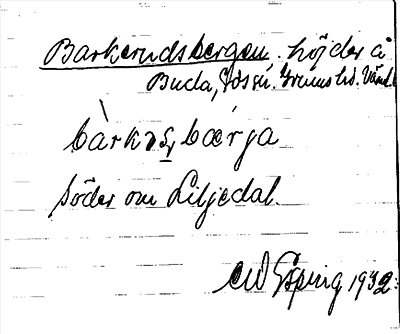 Barkerudsbergen, höjder å
Buda, Ed sn. Grums hd. Värml.
bàrkəṣbærja
söder om Liljedal.
CW Esping 1932.